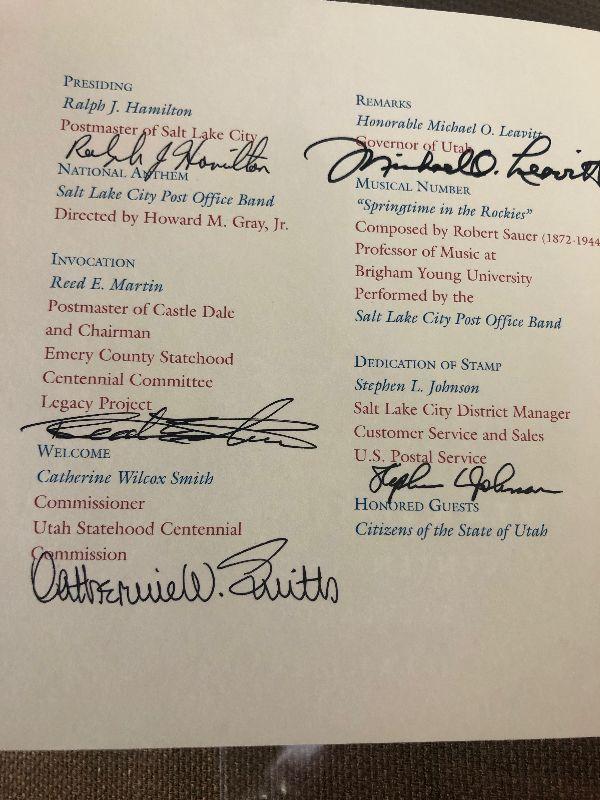 PRESIDING
Ralph J. Hamilton
Postmaster of Salt Lake City
Ralph J Hamilton
NATIONAL ANTHEM
Salt Lake City Post Office Band
Directed by Howard M. Gray, Jr.
INVOCATION
Reed E. Martin
Postmaster of Castle Dale
and Chairman
Emery County Statehood
Centennial Committee
Legacy Project
WELCOME
Catherine Wilcox Smith
Commissioner
Utah Statehood Centennial
Commission
Catherine W. Smith
REMARKS
Honorable Michael O. Leavitt
Governor of Utah
Michael O. Leavitt
MUSICAL NUMBER
"Springtime in the Rockies"
Composed by Robert Sauer (1872-1944
Professor of Music at
Brigham Young University
Performed by the
Salt Lake City Post Office Band
DEDICATION OF STAMP
Stephen L. Johnson
Salt Lake City District Manager
Customer Service and Sales
U.S. Postal Service
Stephen L Johnson
HONORED GUESTS
Citizens of the State of Utah